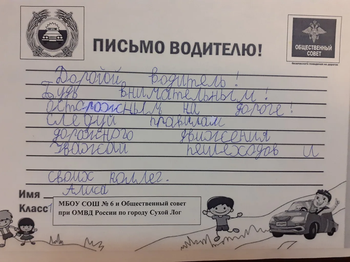 ОБЩЕСТВЕННЫЙ
СОВЕТ
ПИСЬМО ВОДИТЕЛЮ!
Дорогой водитель!
Будь внимательным!
осторожным на дороге!
Следуй правилам
дорожного движения
Уважай пешеходов и
своих коллег.
Имя
Алиса
Класс
МБОУ СОШ № 6 и Общественный совет
при ОМВД России по городу Сухой Лог